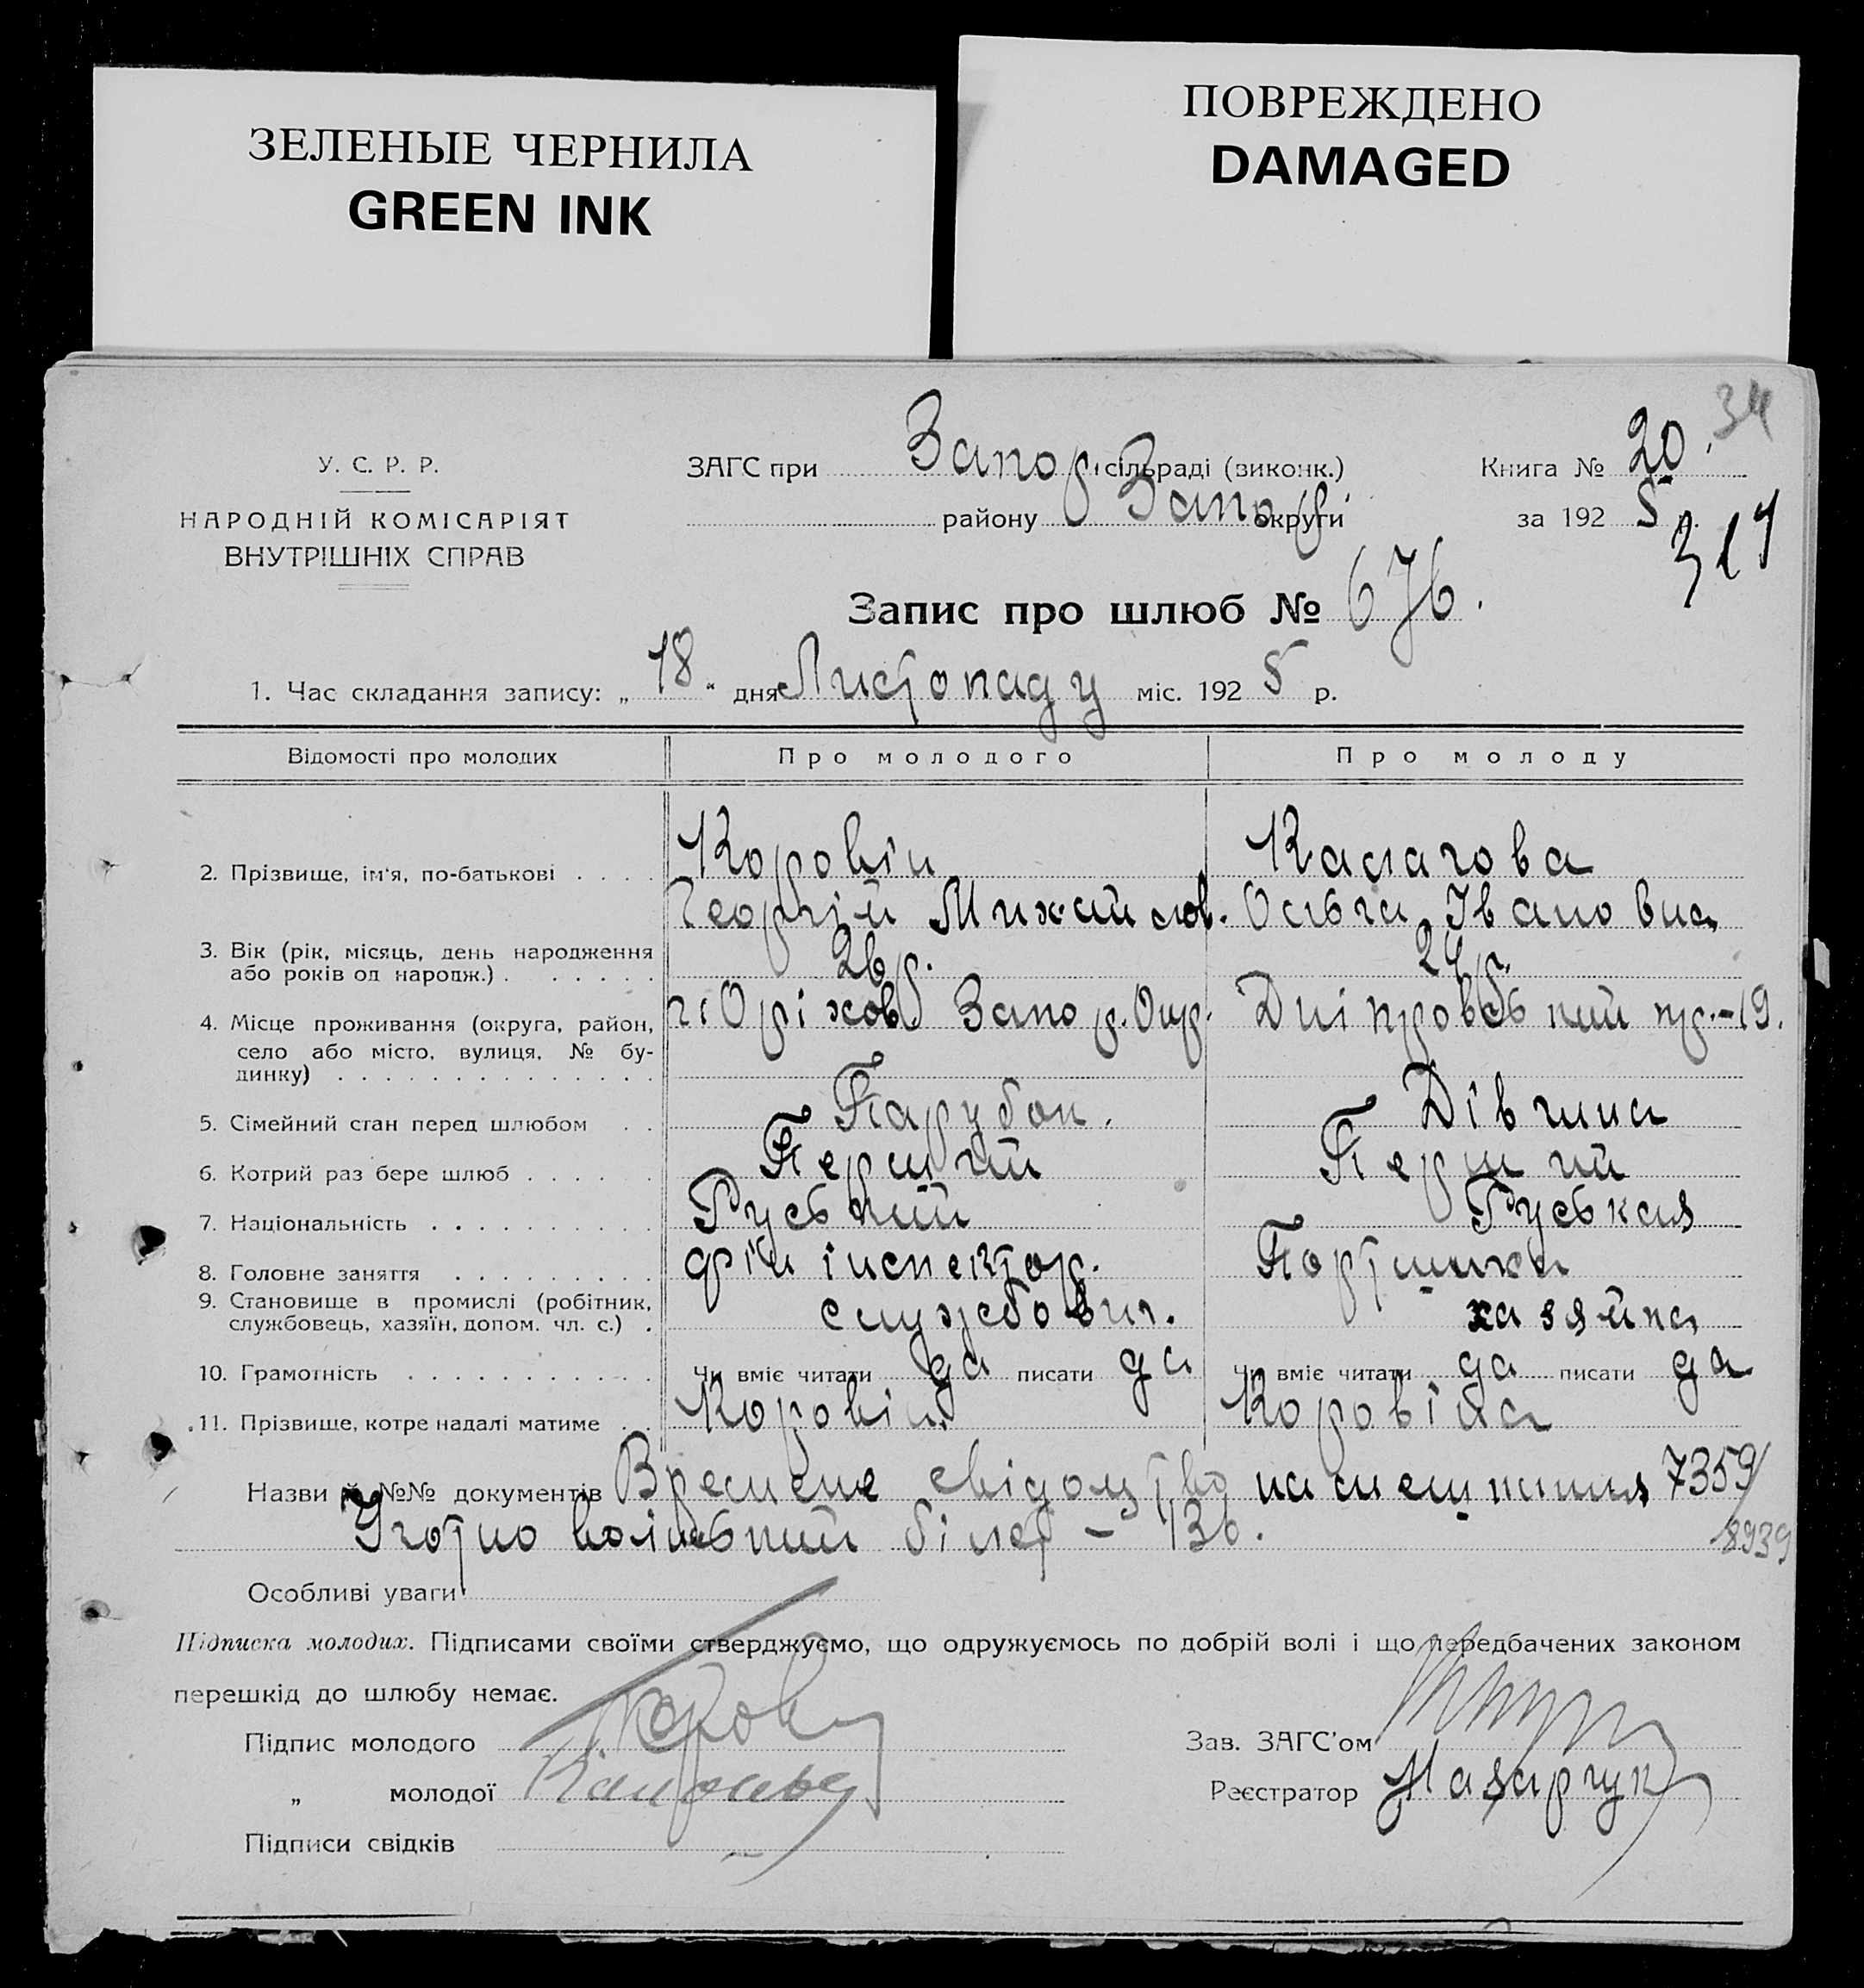 ЗЕЛЕНЫЕ ЧЕРНИЛА
GREEN INK
ПОВРЕЖДЕНО
DAMAGED
34
У. С. Р. Р.
НАРОДНІЙ КОМІСАРІЯТ
ВНУТРІШНІХ СПРАВ
ЗАГС при Запор. сільраді (виконк.)
району Запор. округи
Книга № 20.
за 192 5 р.
319
Запис про шлюб № 676.
1. Час складання запису: „ 18 " дня Листопаду міс. 192 5 р.
Відомості про молодих Про молодого Про молоду
2. Прізвище, ім'я, по-батькові . . . . Коровін Калагова
Георгій Михайлов. Ольга Івановна
3. Вік (рік, місяць, день народження
або років од народж.) . . . . . . 26 р. 24 р.
4. Місце проживання (округа, район, г. Оріхов Запор. Окр. Дніпровський пр.-19.
село або місто, вулиця, № бу-
динку) . . . . . . . . . . . . . .
5. Сімейний стан перед шлюбом . . Парубок. Дівчина
6. Котрий раз бере шлюб . . . . . . Перший Перший
7. Національність . . . . . . . . . . Руський Руськая
8. Головне заняття . . . . . . . . . фін інспектор. Портниха
9. Становище в промислі (робітник,
службовець, хазяїн, допом. чл. с.) . службович. хазяйка
10. Грамотність . . . . . . . . . . . Чи вміє читати да писати да Чи вміє читати да писати да
11. Прізвище, котре надалі матиме . . Коровін. Коровіна
Назви й №№ документів Времене свідоцтво на мешкання 7359/8939
Учотно воінський білет – 136.
Особливі уваги
Підписка молодих. Підписами своїми стверджуємо, що одружуємось по добрій волі і що передбачених законом
перешкід до шлюбу немає.
Підпис молодого
Зав. ЗАГС'ом
„ молодої
Реєстратор Назарчук
Підписи свідків